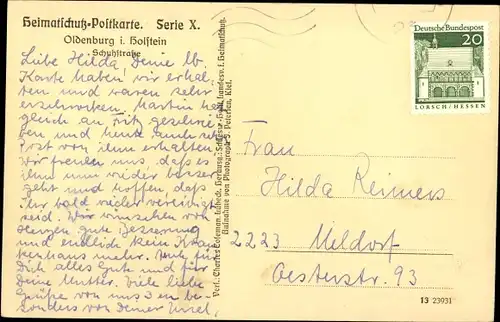 Heimatschutz-Postkarte. Serie X.
Oldenburg i. Holstein
Schuhstraße
Liebe Hilda, Deine lb.
Karte haben wir erhal-
ten und waren sehr
erschrocken. Martin hat
gleich an Fritz geschrie-
ben und heute auch
Post von ihm erhalten
wir freuen uns, daß es
ihm nun wieder besser
geht und hoffen, daß
Ihr bald wieder vereinigt
seid. Wir wünschen von
Herzen gute Besserung
und endlich kein Kran-
kenhaus mehr. Heute für
Dich alles Gute und für
Deine Mutter. Viele liebe
Grüße von uns 3en be-
sonders von Deiner Ursel,
Charles Coleman, Lübeck. Herausg.: Schlesw.-Holst. Landesv. f. Heimatschutz.
Aufnahme von Photograph J. Petersen, Kiel.
Deutsche Bundespost
20
LORSCH/HESSEN
Frau
Hilda Reimers
2223 Meldorf
Oesterstr. 93
13 23931